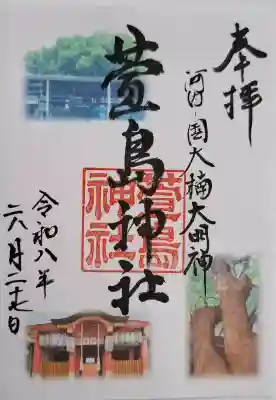 奉拝
河内國大楠大明神
萱島神社
萱島神社
令和八年
六月二十七日